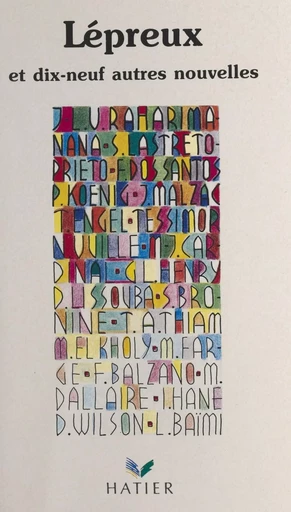 Lépreux
et dix-neuf autres nouvelles
J.L.V.RAHARIMA-
NANA·S.LASTRETO-
PRIETO·E.DOSSANTOS
P.KOENIG·J.MALZAC
T.ENGEL·TESSIMOR
N.VUILLE·M.CAR-
DINAL·C.L.HENRY
D.LISSOUBA·S.BRO-
NINE·T.A.THIAM
M.ELKHOLY·M.FAR-
GE·F.BALZANO·M.
DALLAIRE·I.HANE
D.WILSON·L.BAÏMI
HATIER